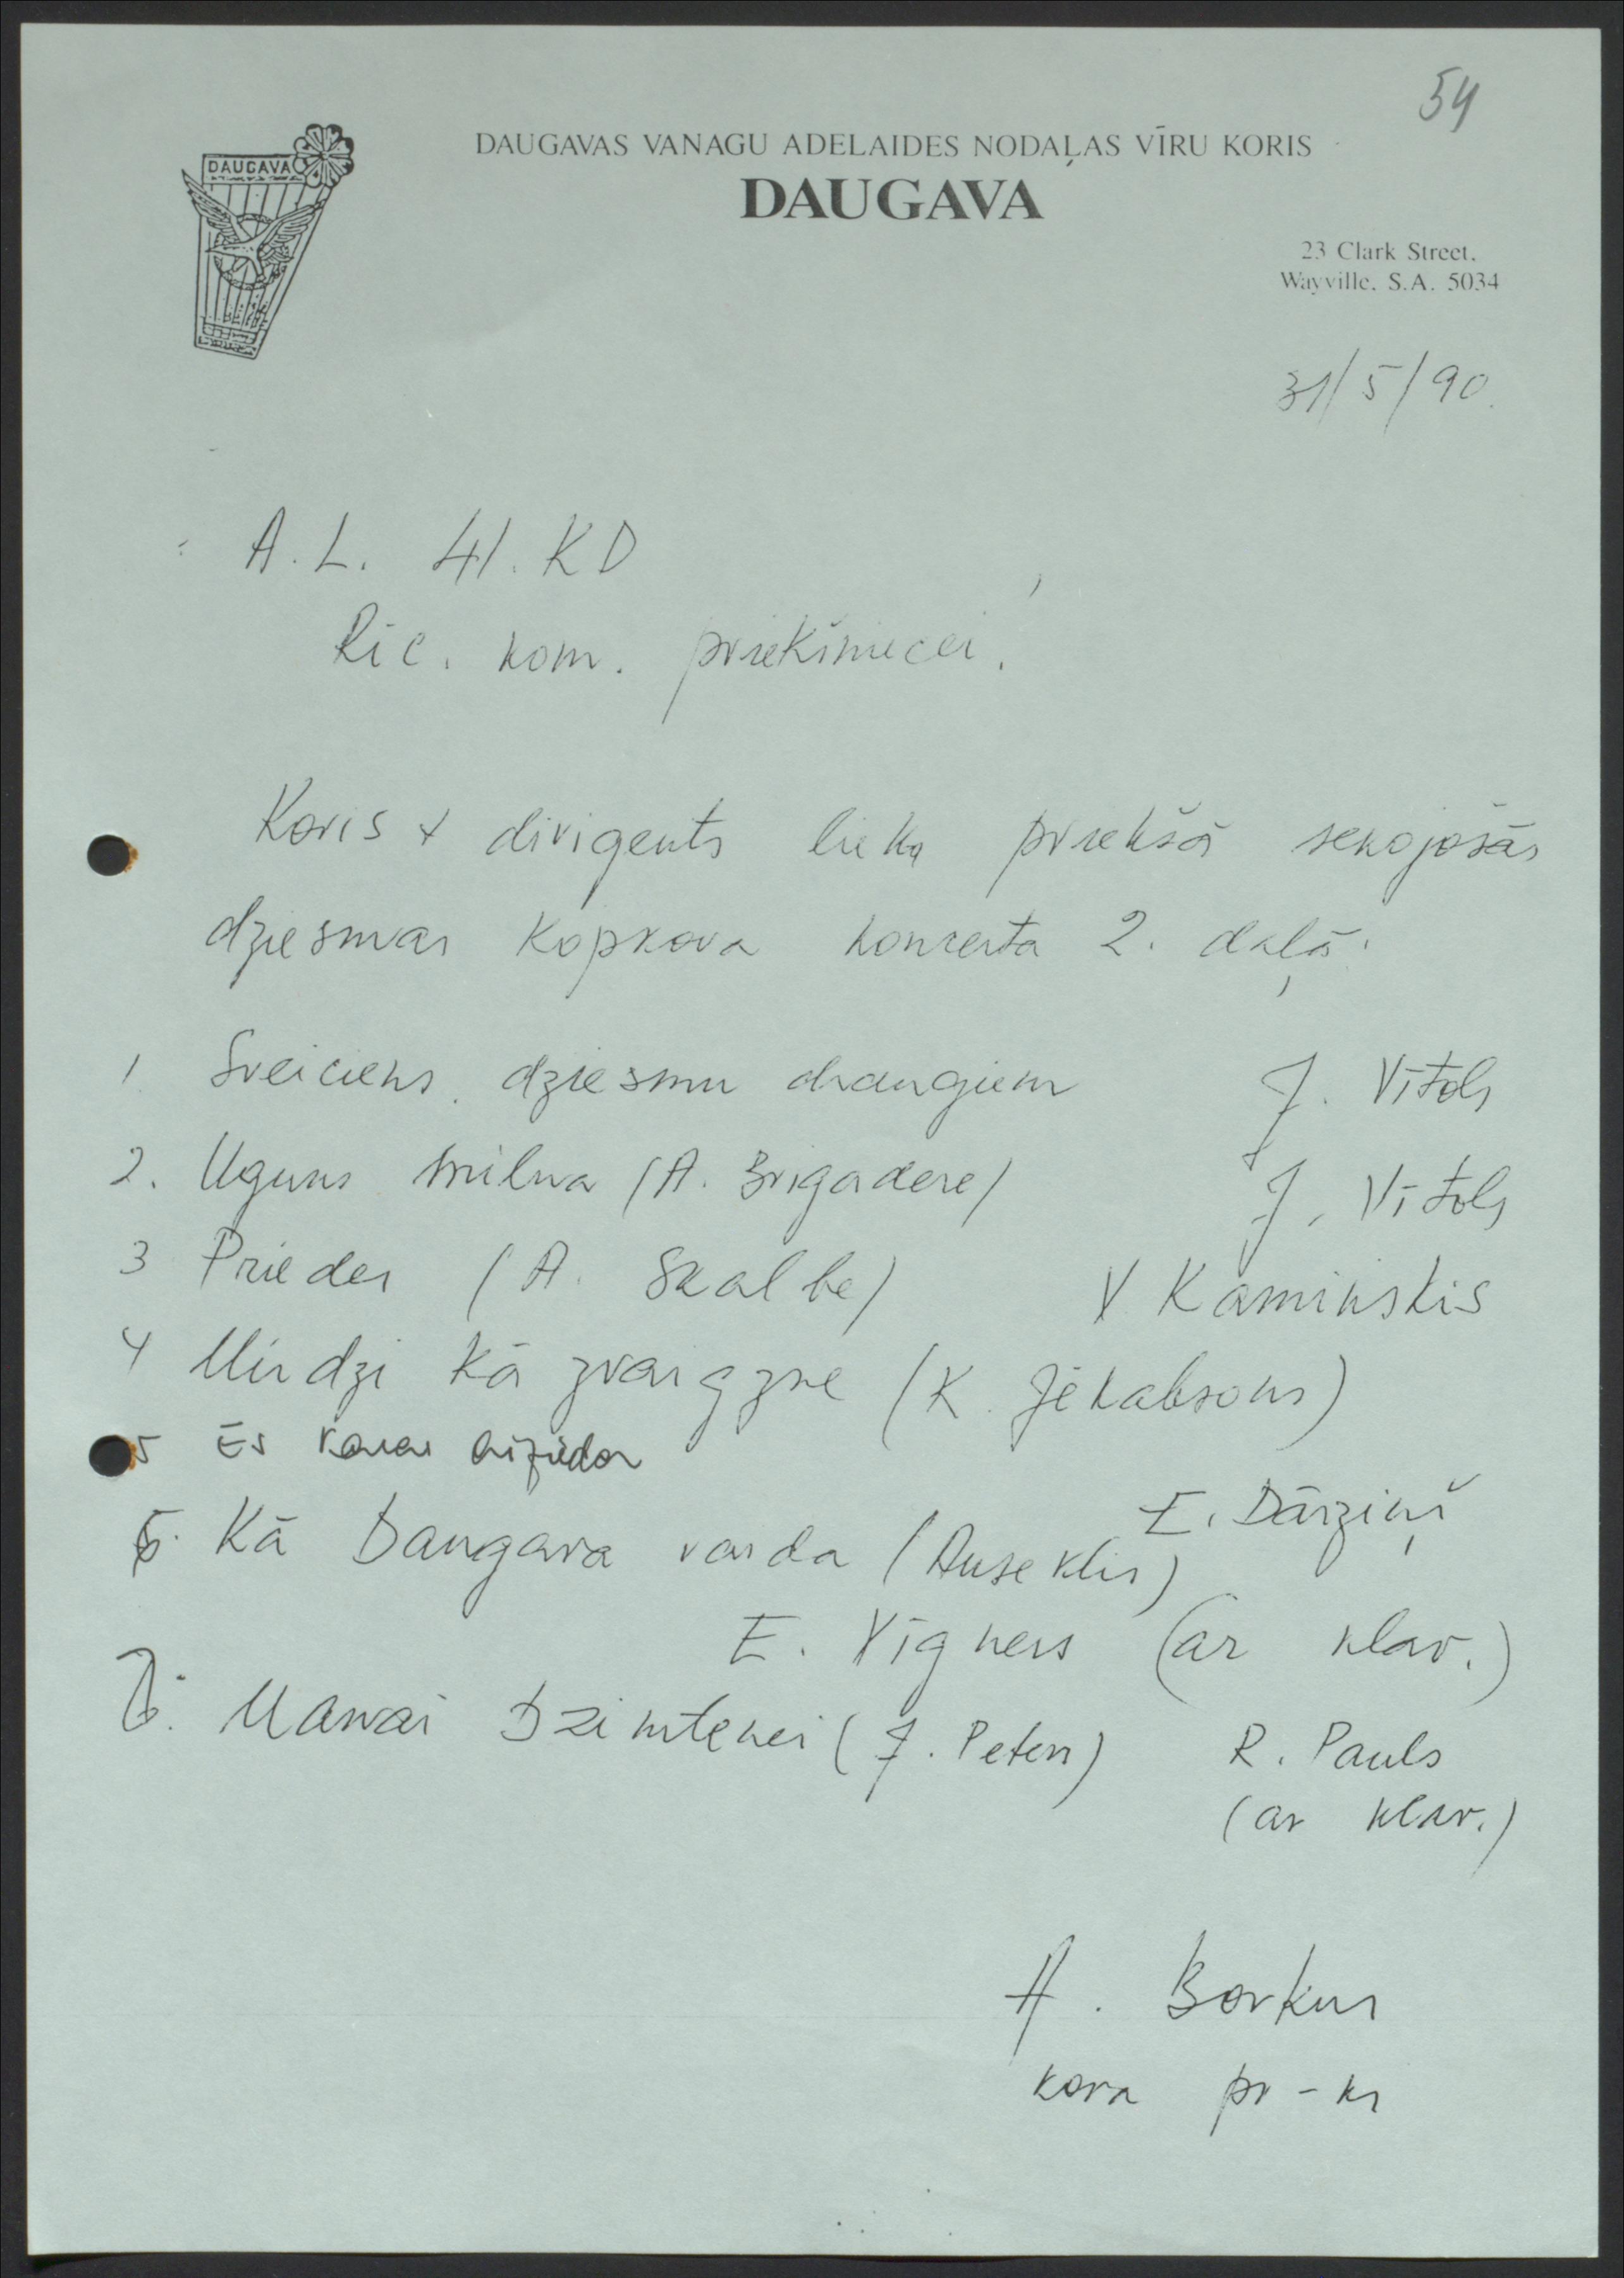 54
DAUGAVA
DAUGAVAS VANAGU ADELAIDES NODAĻAS VĪRU KORIS
DAUGAVA
23 Clark Street,
Wayville, S.A. 5034
31/5/90.
A. L. 41. KD
Rīc. kom. priekšniecei!
Koris + dirigents lieka priekšā sekojošās
dziesmas Kopkora koncerta 2. daļā.
1. Sveiciens dziesmu draugiem J. Vītols
2. Uguns milna (A. Brigadere) J. Vītols
3 Priedes (A. Skalbe) V. Kaminskis
4 Mirdzi kā zvaigzne (K. Jēkabsons)
E. Dārziņš
5 Es karai aiziedam
6. Kā Daugava vaida (Auseklis)
E. Vīgners (ar klav.)
7. Manai Dzimtenei (J. Peters) R. Pauls
(ar klav.)
A. Borkus
kora pr-ks